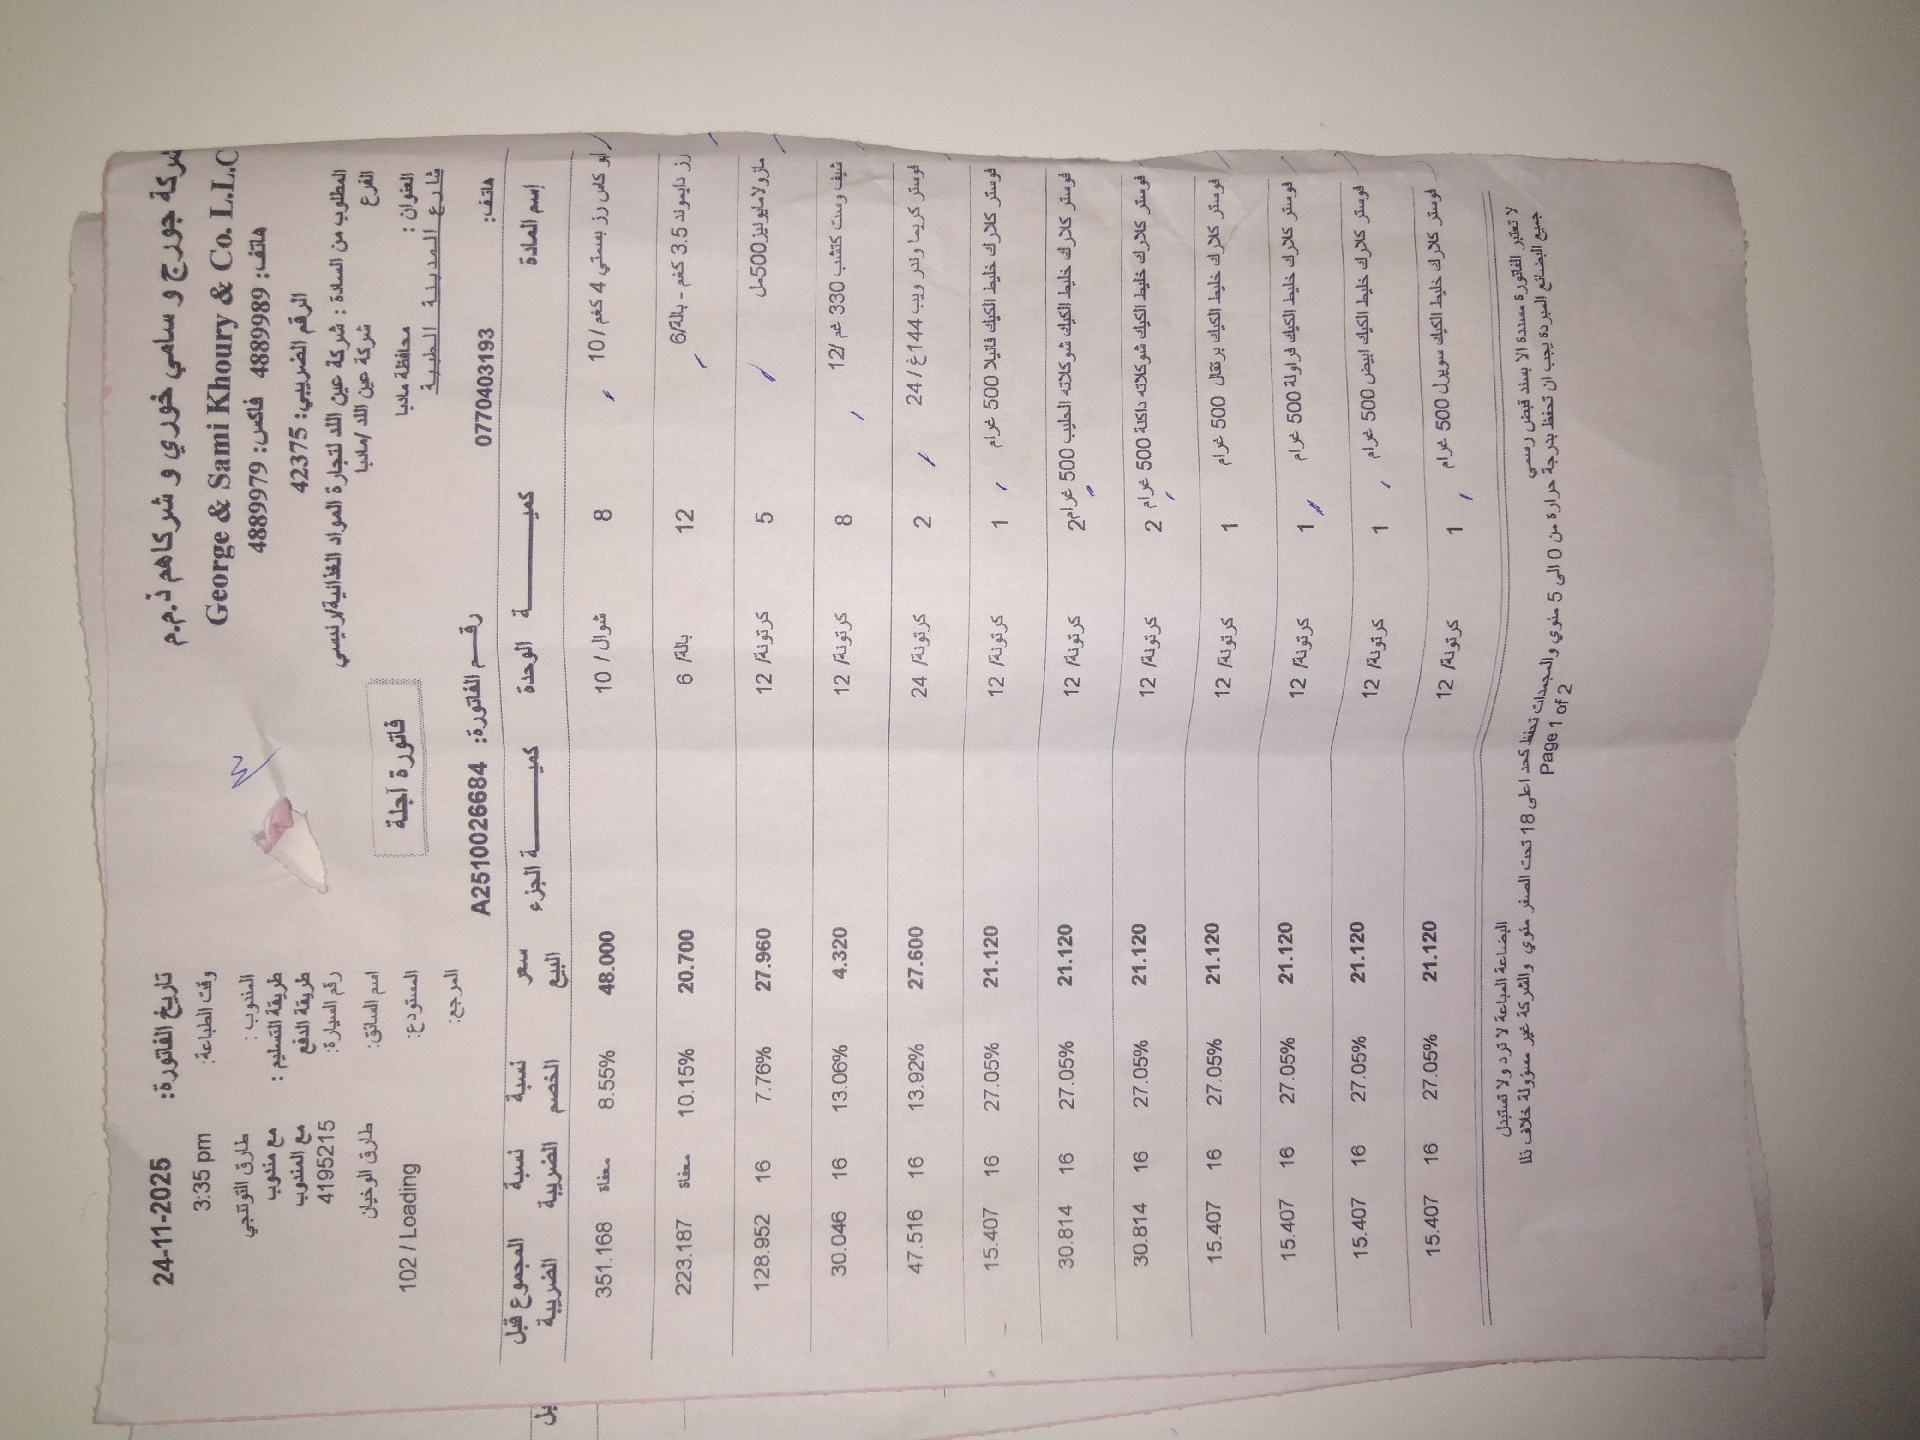 شركة جورج و سامي خوري و شركاهم ذ.م.م
George & Sami Khoury & Co. L.L.C
هاتف: 4889989 فاكس: 4889979
الرقم الضريبي: 42375
المطلوب من السادة : شركة عين اللد لتجارة المواد الغذائية/رئيسي
الفرع شركة عين اللد /مادبا
العنوان : محافظة مادبا
شارع المدينة الطبية
هاتف: 0770403193
تاريخ الفاتورة: 24-11-2025
وقت الطباعة: 3:35 pm
المندوب : طارق التونتجي
طريقة التسليم : مع مندوب
طريقة الدفع مع المندوب
رقم السيارة: 4195215
اسم السائق: طارق الوخيان
المستودع: 102 / Loading
المرجع:
فاتورة آجلة
رقم الفاتورة: A2510026684
إسم المادة كميـــة الوحدة كميـــة الجزء سعر البيع نسبة الخصم نسبة الضريبة المجموع قبل الضريبة
ابو كاس رز بسمتي 4 كغم /10 8 شوال / 10 48.000 8.55% معفاة 351.168
رز دايموند 3.5 كغم - بالة/6 12 بالة/ 6 20.700 10.15% معفاة 223.187
مازولا مايونيز500مل 5 كرتونة/ 12 27.960 7.76% 16 128.952
شيف وست كتشب 330 غم /12 8 كرتونة/ 12 4.320 13.06% 16 30.046
فوستر كريما وندر ويب 144غ /24 2 كرتونة/ 24 27.600 13.92% 16 47.516
فوستر كلارك خليط الكيك فانيلا 500 غرام 1 كرتونة/ 12 21.120 27.05% 16 15.407
فوستر كلارك خليط الكيك شوكلاته الحليب 500 غرام 2 كرتونة/ 12 21.120 27.05% 16 30.814
فوستر كلارك خليط الكيك شوكلاته داكنة 500 غرام 2 كرتونة/ 12 21.120 27.05% 16 30.814
فوستر كلارك خليط الكيك برتقال 500 غرام 1 كرتونة/ 12 21.120 27.05% 16 15.407
فوستر كلارك خليط الكيك فراولة 500 غرام 1 كرتونة/ 12 21.120 27.05% 16 15.407
فوستر كلارك خليط الكيك ابيض 500 غرام 1 كرتونة/ 12 21.120 27.05% 16 15.407
فوستر كلارك خليط الكيك سويرل 500 غرام 1 كرتونة/ 12 21.120 27.05% 16 15.407
لا تعتبر الفاتورة مسددة الا بسند قبض رسمي البضاعة المباعة لا ترد ولا تستبدل
جميع البضائع المبردة يجب ان تحفظ بدرجة حرارة من 0 الى 5 مئوي والمجمدات تحفظ كحد اعلى 18 تحت الصفر مئوي والشركة غير مسؤولة خلاف ذلك
Page 1 of 2